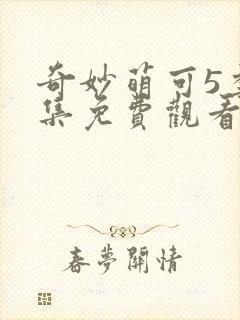 奇妙萌可5
集免費觀看
春夢關情